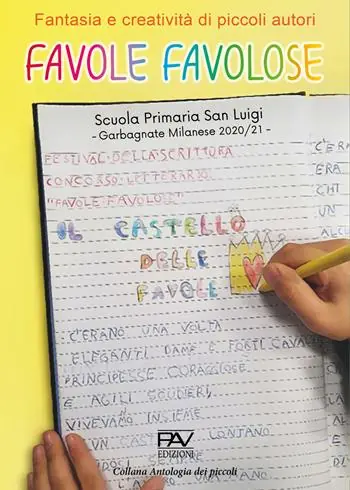 Fantasia e creatività di piccoli autori
FAVOLE FAVOLOSE
Scuola Primaria San Luigi
- Garbagnate Milanese 2020/21 -
FESTIVAL DELLA SCRITTURA
CONCORSO LETTERARIO
"FAVOLE FAVOLOSE"
IL CASTELLO
DELLE
FAVOLE
C'ERANO UNA VOLTA
ELEGANTI DAME E FORTI CAVAL
PRINCIPESSE CORAGGIOSE
E AGILI SCUDIERI,
VIVEVANO INSIEME
UN CASTELLO LONTANO
SEMPRE
C'ERA
ERA
CHI
UN
ALCU
PAV
EDIZIONI
Collana Antologia dei piccoli